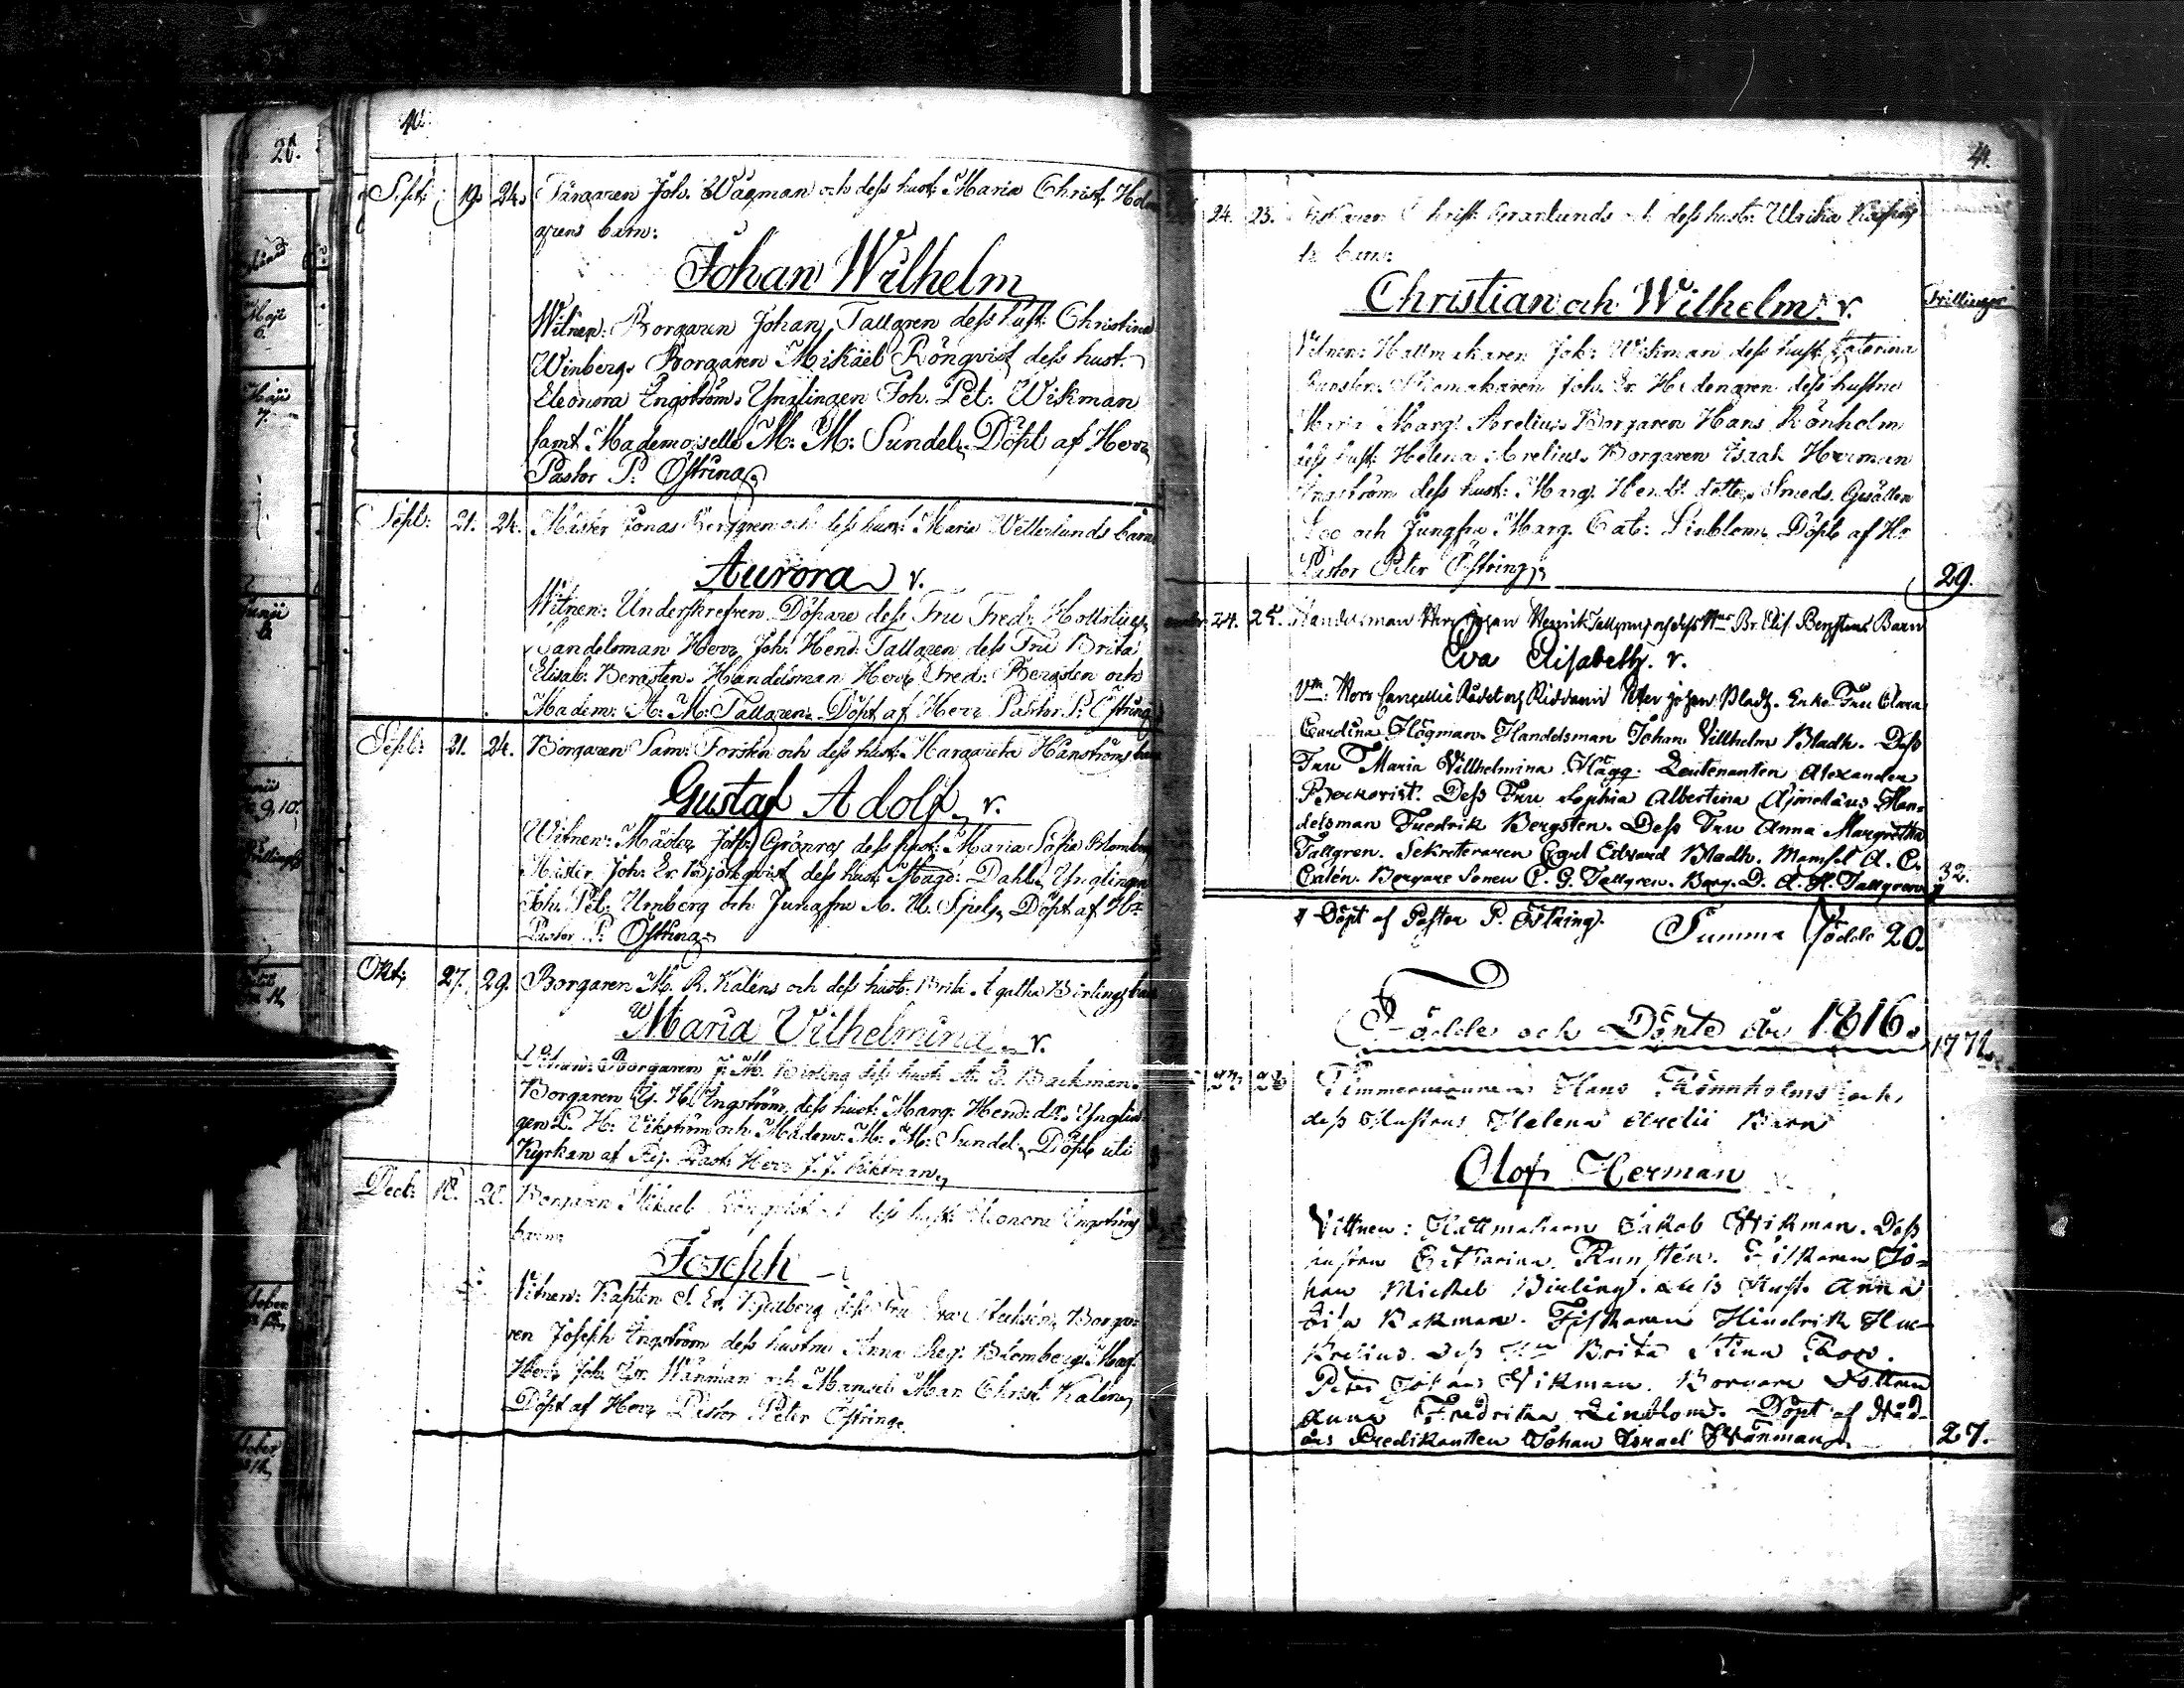 40.
Sept: 19. 24. Färgaren Joh. Wägman och dess hust: Maria Christ. Holm
grens barn:
Johan Wilhelm
Witnen: Borgaren Johan Tallgren dess hust: Christina
Winberg. Borgaren Mikael Rönqvist dess hust.
Eleonora Engström. Ynglingen Joh. Pet. Wikman
samt Mademoiselle M: M: Sundel. Döpt af Herr
Pastor P: Östring.
Sept: 21. 24. Mäster Jonas Berggren och dess hust: Maria Vetterlunds barn
Aurora v.
Witnen: Underskrefven Döpare dess Fru Fred:
Handelsman Herr Joh: Hend: Tallgren dess Fru Brita
Elisab: Bergsten. Handelsman Herr Fred: Bergsten och
Madem: A: M: Tallgren. Döpt af Herr Pastor P: Östring
Sept: 21. 24. Borgaren Sam: Forsten och dess hust: Margareta Hånströms barn
Gustaf Adolf v.
Witnen: Mäster Joh: Grönros dess hust: Maria Sofia Blomberg
Mäster Joh: Er. Björkqvist dess hust: Magd: Dahl. Ynglingen
Joh. Pet. Umberg och Jungfru A. U. Spels. Döpt af Hr
Pastor P: Östring.
Okt: 27. 29. Borgaren M. R. Kaléns och dess hust: Brita Agatha Birlings barn
Maria Vilhelmina v.
Witnen: Borgaren J. M. Birling dess hust: A. E. Backman.
Borgaren G. H. Engström, dess hust: Marg: Hend: dr. Ynglin-
gen L. H: Vikström och Madem: M: M: Sundel. Döpt uti
Kyrkan af Rej. Past: Herr J. J. Wikman.
Dec: 18. 20. Borgaren Mikael Rönqvist och dess hust: Eleonora Engströms
barn
Joseph
Vitnen: Kapten S. Er. Kjerberg dess Fru Eva Stechsén, Borga-
ren Joseph Engström dess hustru Anna Reg: Blomberg. Mag.
Herr Joh: Isr. Wänman och Mamsel Mar. Christ. Kalén
Döpt af Herr Pastor Peter Östring.
41.
24. 25. Fiskaren Christ. Granlunds och dess hust: Ulrika
barn:
Christian och Wilhelm. v. Tvillingar
Vitnen: Hattmakaren Jak: Wikman dess hust: Caterina
Runsten. Skomakaren Joh. Er. Hedengren dess hustru
Maria Marg: Arelius. Borgaren Hans Rönholm
dess hust: Helena Arelius. Borgaren Isaak Herman
Engström dess hust: Marg. Hend: dotter. Smeds Gesällen
och Jungfru Marg. Cat: Linblom. Döpt af Hr
Pastor Peter Östring. 29.
24. 25. Handelsman Herr Johan Henrik Tallgren och dess Hus Br. Elis. Bergstens Barn
Eva Elisabeth. v.
Vn: Herr Cancellie Rådet och Riddaren Peter Johan Bladh. Enke Fru Clara
Carolina Högman. Handelsman Johan Villhelm Bladh. Dess
Fru Maria Villhelmina Hägg. Leutenanten Alexander
Beckqvist. Dess Fru Sophia Albertina Ajmelæus. Han-
delsman Fredrik Bergsten. Dess Fru Anna Margretha
Tallgren. Sekreteraren Carl Edvard Bladh. Mamsel A. C.
Calén. Borgare Sonen C. G. Tallgren. Borg. D. A. H. Tallgren 32.
Döpt af Pastor P. Östring. Summa Födde 20.
Födde och Dönte år 1816.
1772
Timmermannen Hans Rönnholms och
dess Hustrus Helena Arelii Barn
Olof Herman
Vittnen: Hattmakaren Jakob Wikman. Dess
hustru Catharina Runstén. Fiskaren Jo-
han Mickel Birling. dess Hust. Anna
Lisa Bakman. Fiskaren Hindrik
Dess Hu Brita Stina Roos.
Peter Johan Wikman. Borgare Dottern
Anna Fredrika Lindblom. Döpt af Nåd-
års Predikanten Johan Israel Wänman. 27.